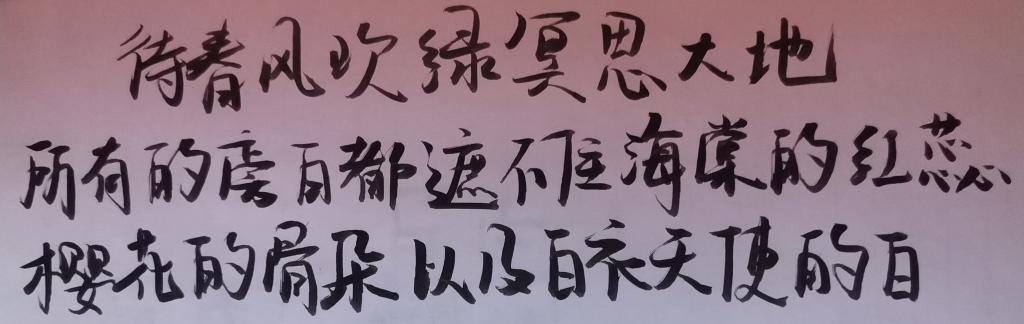 待春风吹绿冥思大地
所有的虚白都遮不住海棠的红蕊
樱花的骨朵以及白衣天使的白